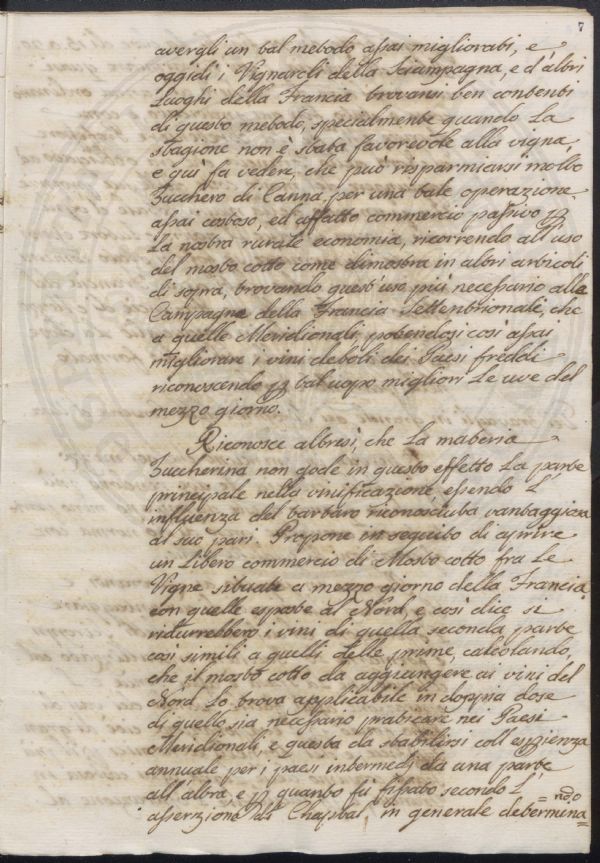 7
avergli un tal metodo assai migliorati, e
oggidì i Vignaroli della Sciampagna, e d'altri
Luoghi della Francia trovansi ben contenti
di questo metodo, specialmente quando La
stagione non è stata favorevole alla vigna,
e quì fa vedere, che può risparmiarsi molto
Zucchero di Canna per una tale operazione
assai costoso, ed affatto commercio passivo p
La nostra rurale economia, ricorrendo all'uso
del mosto cotto come dimostra in altri articoli
di sopra, trovando quest'uso più necessario alle
Campagne della Francia Settentrionale, che
a quelle Meridionali potendosi così assai
migliorare i vini deboli dei Paesi freddi
riconoscendo p tal uopo migliori Le uve del
mezzo giorno.
Riconosce altresì, che La materia
Zuccherina non gode in questo effetto La parte
principale nella vinificazione, essendo L'
influenza del tartaro riconosciuta vantaggiosa
al suo pari. Propone in seguito di aprire
un Libero commercio di Mosto cotto fra Le
Vigne situate a mezzo giorno della Francia
con quelle esposte al Nord, e così dice si
ridurrebbero i vini di quella seconda parte
così simili a quelli delle prime, calcolando,
che il mosto cotto da aggiungere ai vini del
Nord Lo trova applicabile in doppia dose
di quello sia necessario praticare nei Paesi
Meridionali, e questa da stabilirsi coll'espzienza
annuale per i paesi intermedj da una parte
all'altra, e p quanto fù fissato secondo L'
asserzione di Chaptal, in generale determina=
=ndo